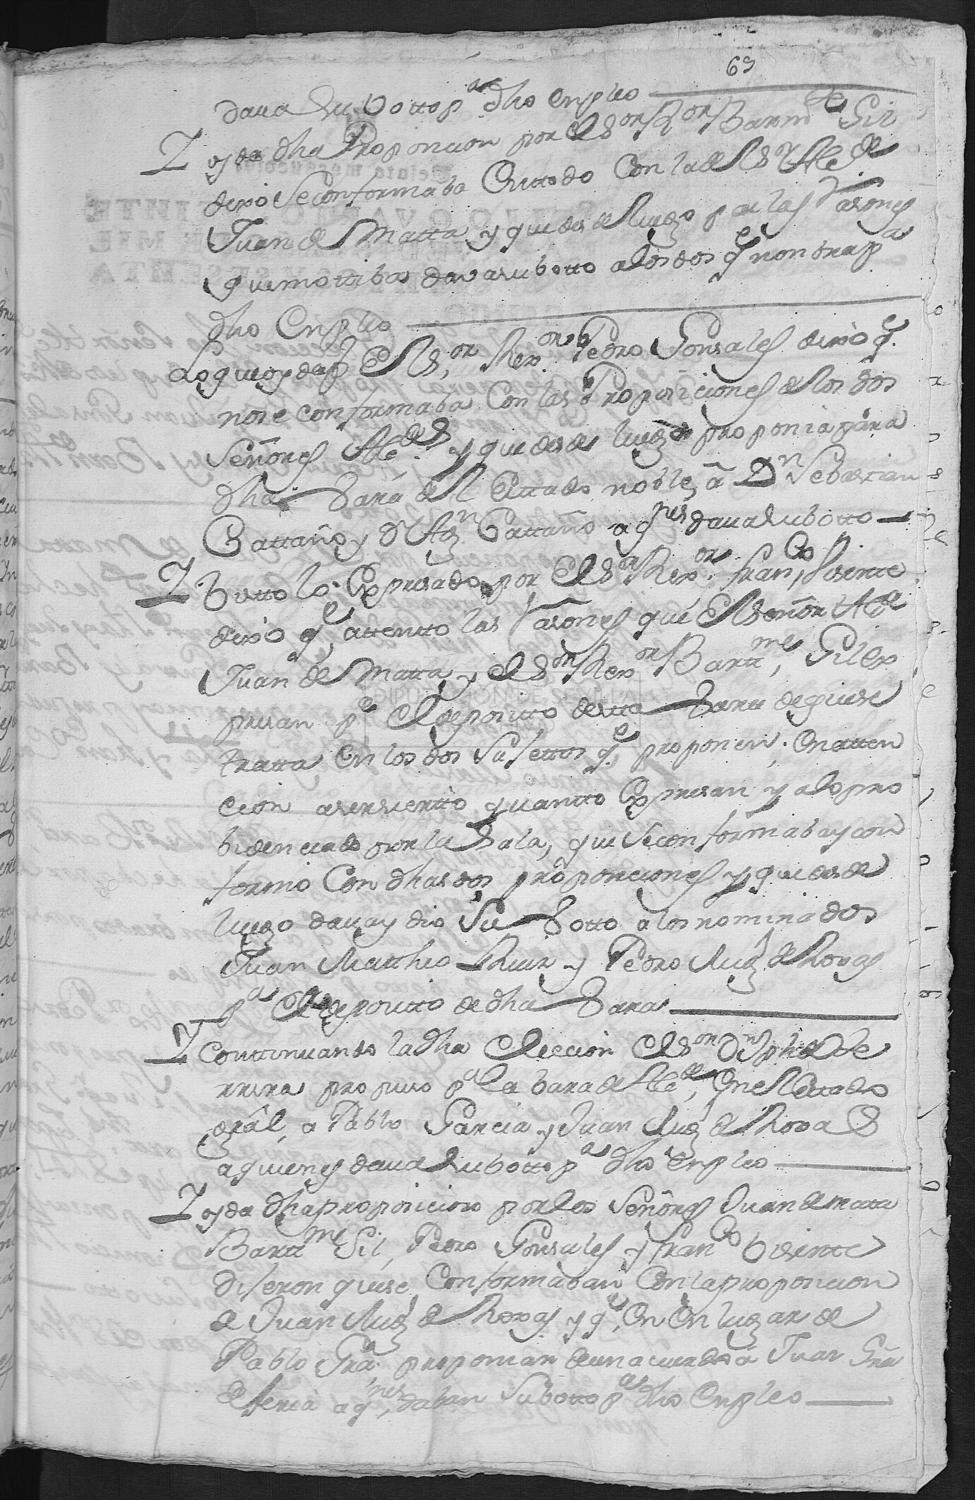 63
dava su botto pª dho enpleo
Y oyda dha Proposicion por el Sor Ror Barme Gil
dixo se conformaba en todo con la del Sr Alde
Juan de Matta y que desde luego por las rasones
que motibas dava su botto a los dos qe nonbra pª
dho Enpleo
Lo que oydo pr el Sor Rexor Pedro Gonsales dixo qe
no se conformaba con las Proposiciones de los dos
Señores Aldes y que desde luego proponia para
dha Bara del Estado noble, a Dn Sebastian
Cattaño y Dn Agn Cattaño a qnes dava su botto
Y Bisto lo Expresado por el Sor Rexor Franco Bisente
dixo qe attento las rasones que el Señor Alde
Juan de Matta, y el Sor Rexor Barttme Gil ex
presan pª el deposito de esta Bara de que se
tratta en los dos Sujettos qe proponen; en atten
cion a ser sierto quanto Expresan y a lo pro
bidenciado por la Sala, que se conformaba y con
formo con dhas dos proposiciones y que desde
luego dava y dio su Botto a los nominados
Juan Matheo Ruiz y Pedro Muñz de Roxas
pª el deposito de dha Bara
Y Continuando la dha eleccion el Sor Dn Phe de He
rrera propuso pª la bara de Alde en el Estado
Gral, a Pablo Garcia y Juan Muñz de Roxas
a quienes dava su botto pª dho enpleo
Y oyda dha proposicion por los Señores Juan de matta
Barttme Gil, Pedro Gonsales y Franco Bisente
dijeron que se conformaban con la proposicion
de Juan Muñz de Roxas y qe en lugar de
Pablo Gra proponian de un acuerdo a Juan Gra
de Feria a qnes daban su botto pª dho enpleo